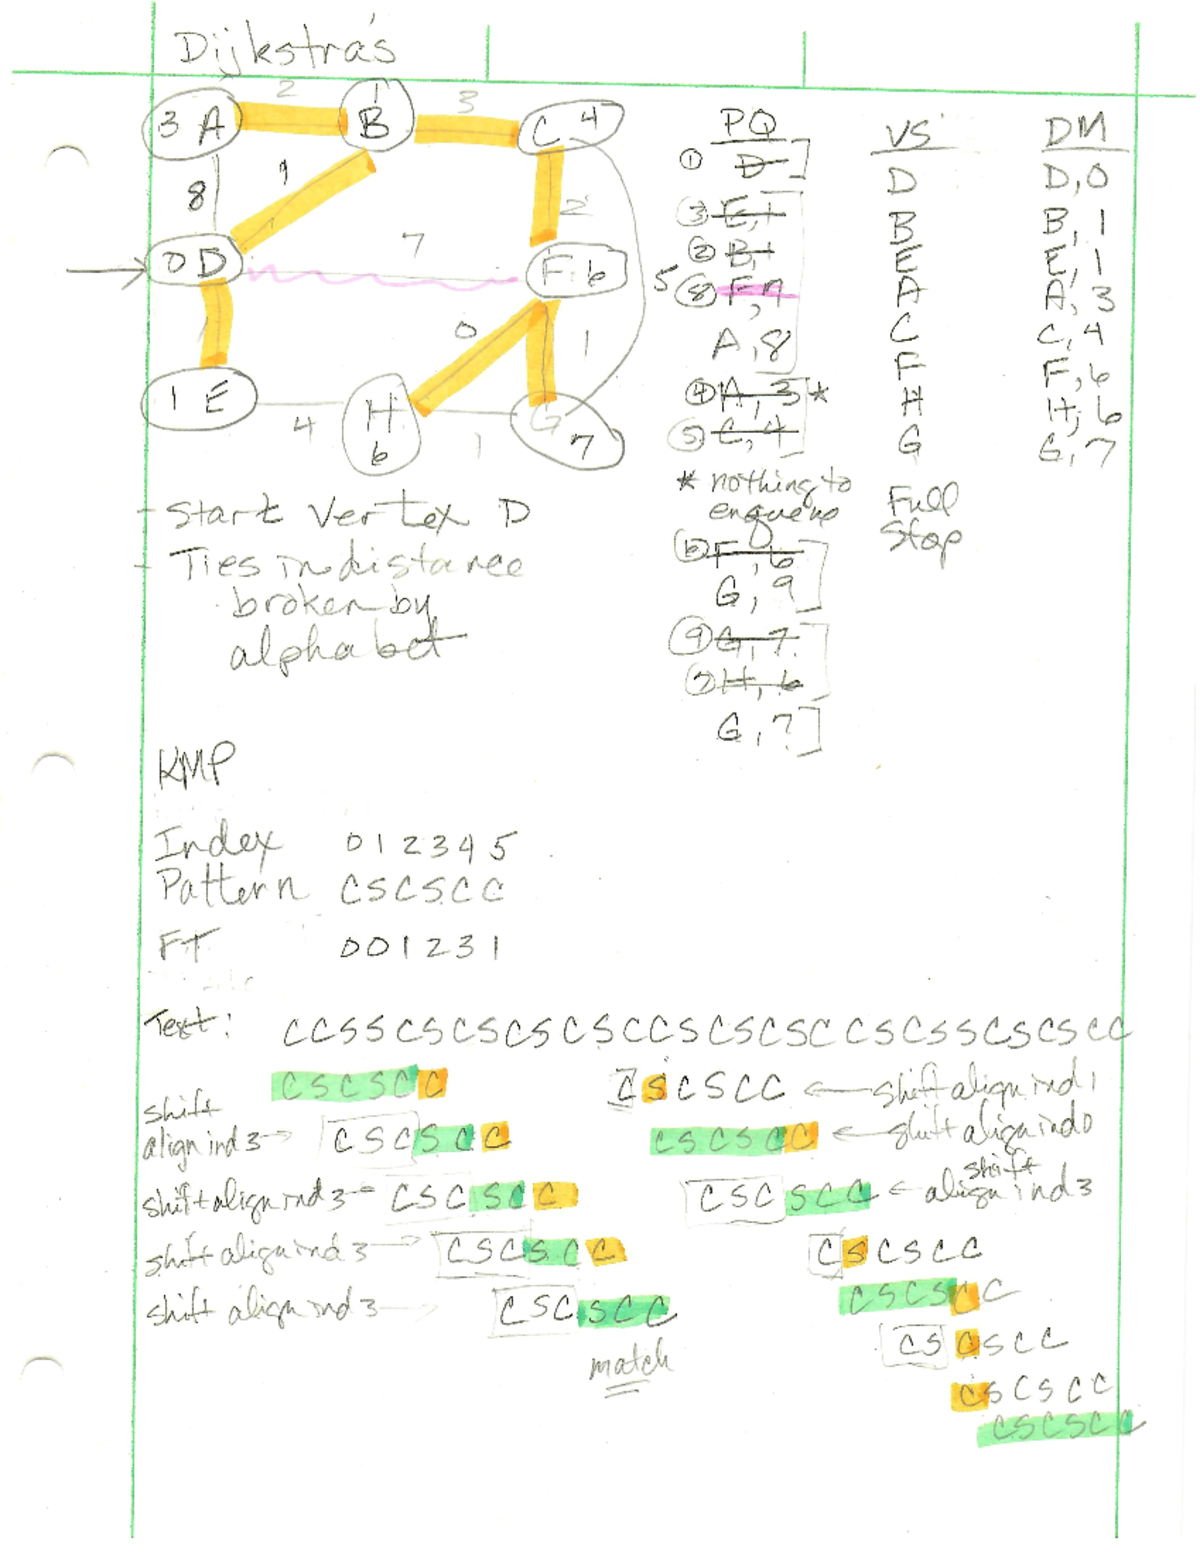 Dijkstra's
2
3
3 A
1 B
C 4
8
1
2
0 D
7
F 6
0
1
1 E
4
H 6
1
G 7
PQ VS DM
① D D D,0
③ E,1 B B,1
② B,1 E E,1
5 ⑧ F,7 A A,3
A,8 C C,4
④ A,3 * F F,6
⑤ C,4 H H,6
G G,7
* nothing to enqueue
Full Stop
⑥ F,6
G,9
⑨ G,7
⑦ H,6
G,7
- Start Vertex D
- Ties in distance
broken by
alphabet
KMP
Index 0 1 2 3 4 5
Pattern C S C S C C
FT 0 0 1 2 3 1
Text: CCSSCSCSCSCSCCSCSCSCCSCSSCSCSCC
CSCSCC
shift align ind 3 → CSCSCC
shift align ind 3 → CSCSCC
shift align ind 3 → CSCSCC
shift align ind 3 → CSCSCC
match
CSCSCC ← shift align ind 1
CSCSCC ← shift align ind 0
CSCSCC ← shift align ind 3
CSCSCC
CSCSCC
CSCSCC
CSCSCC
CSCSCC